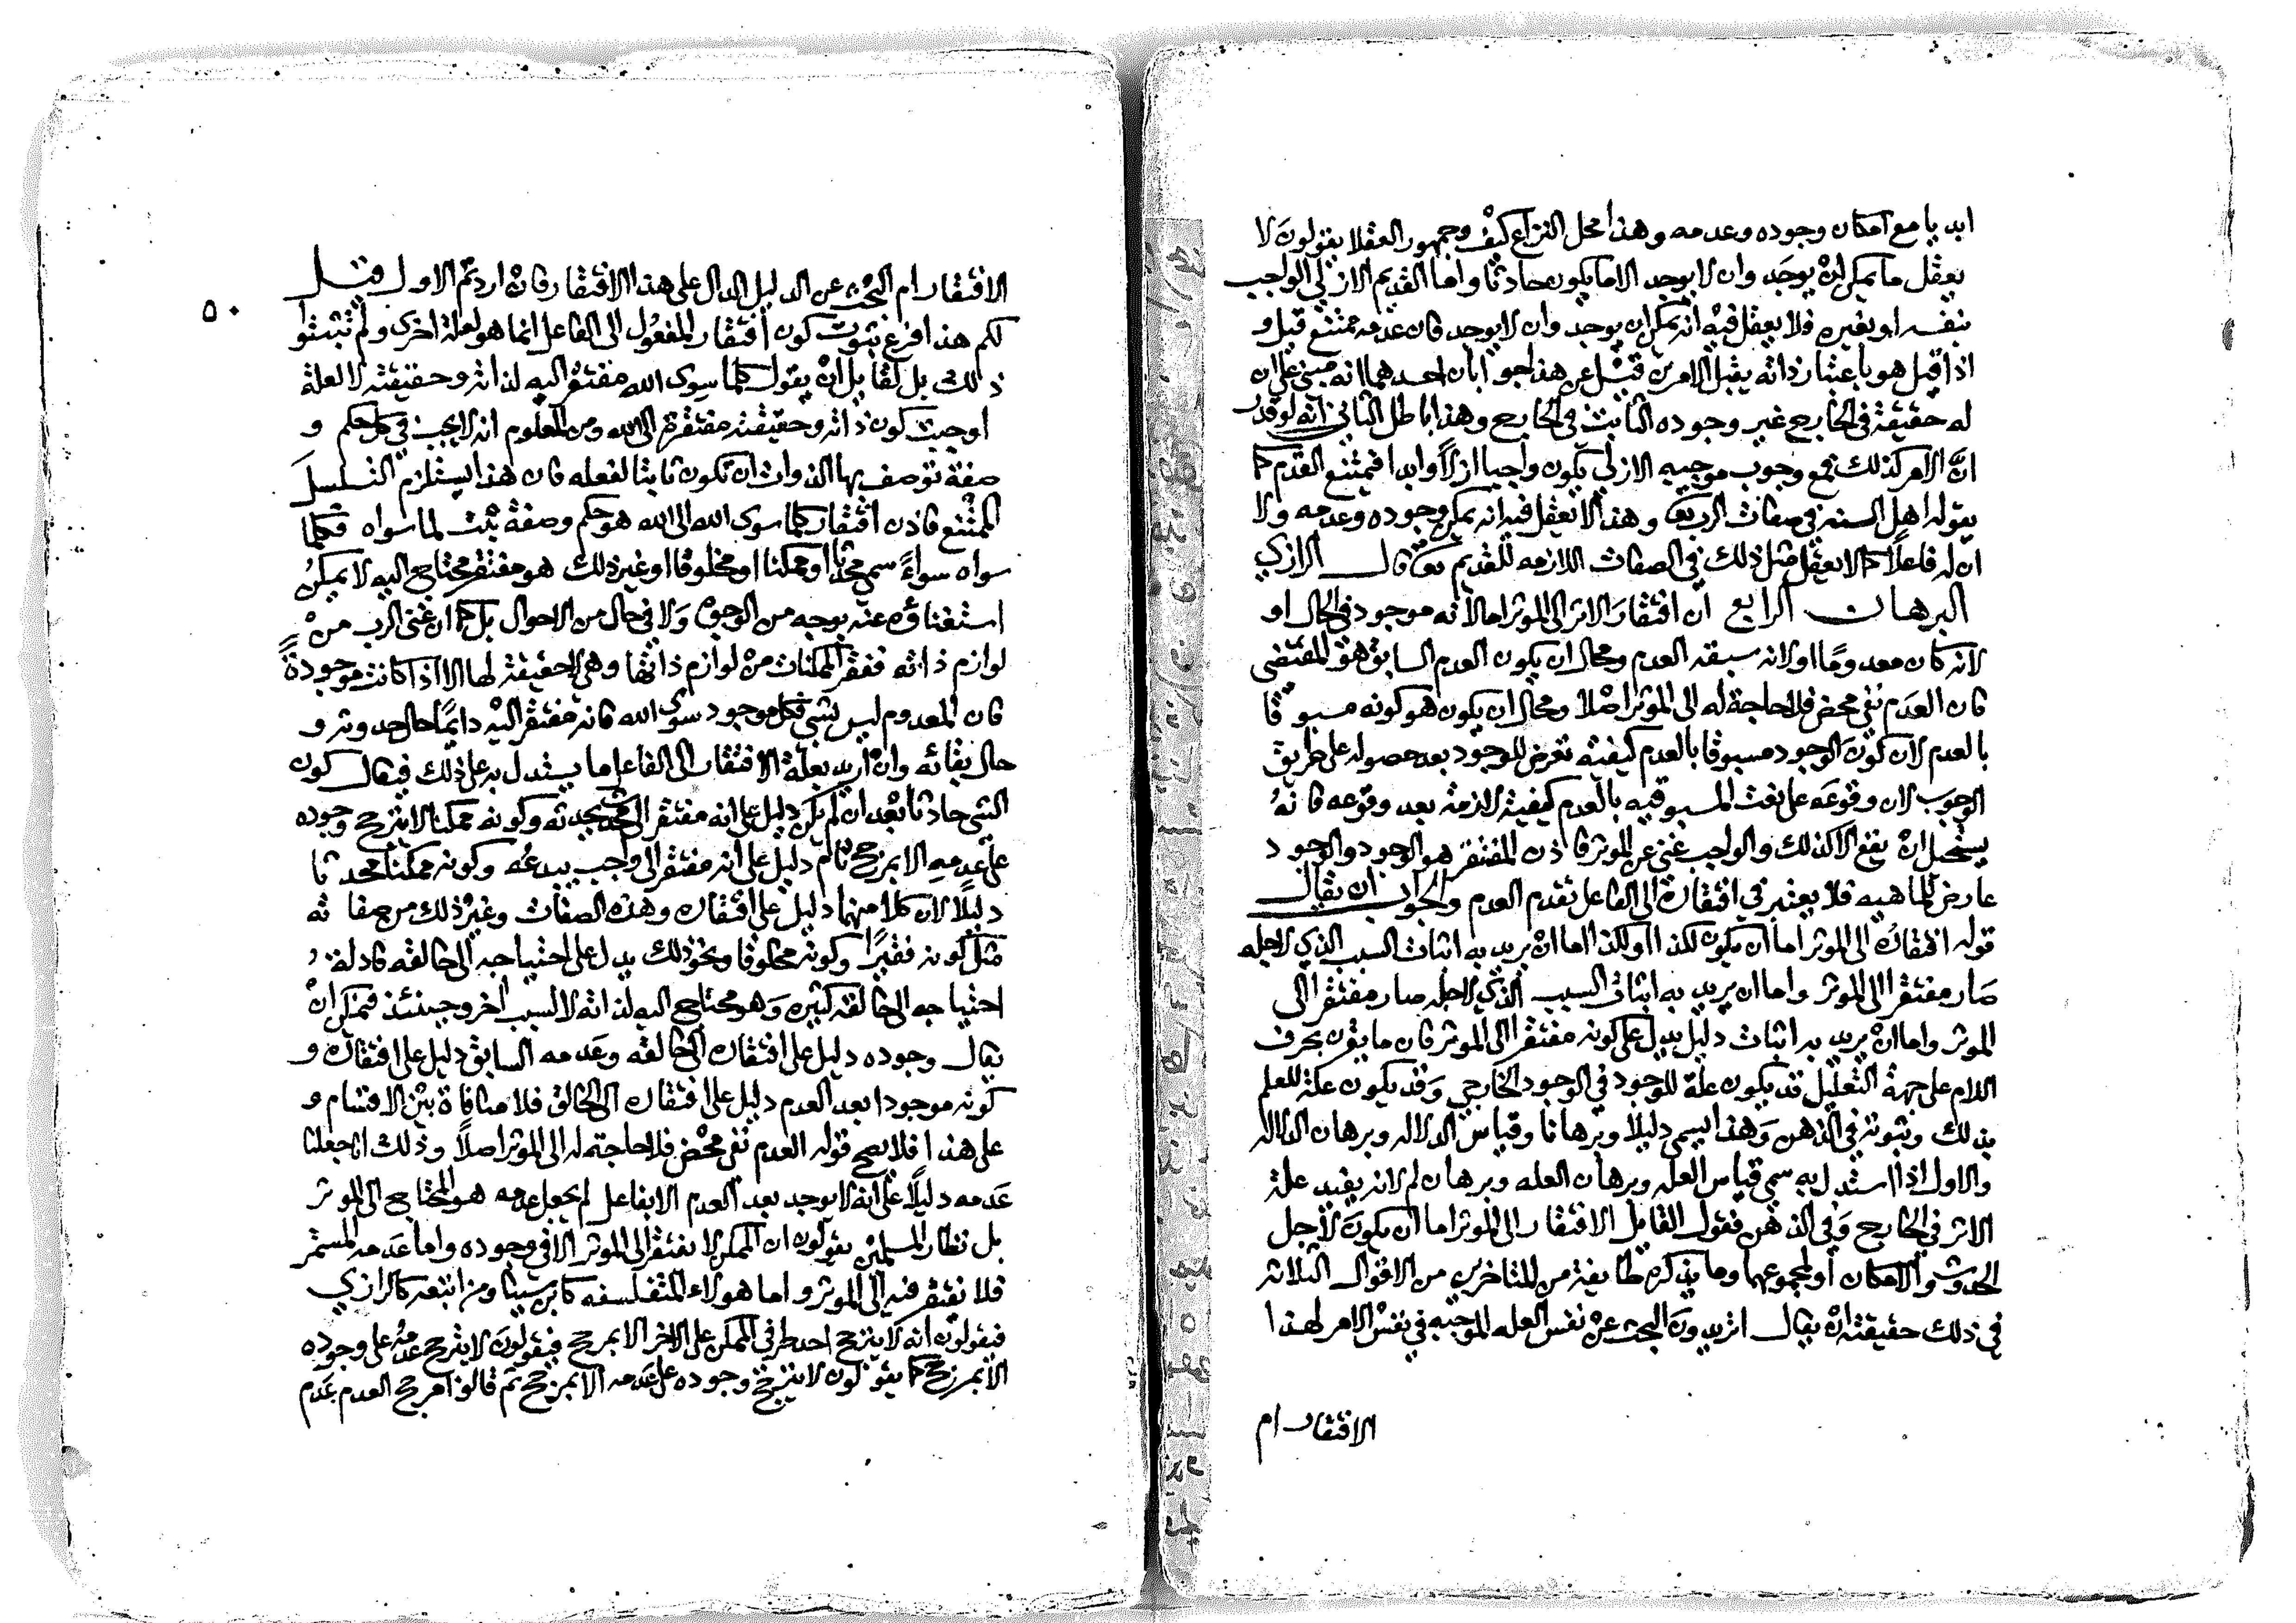 ابديا مع امكان وجوده وعدمه وهذا محل النزاع كيف وجمهور العقلا يقولون لا
يعقل ما يمكن ان يوجد وان لا يوجد الا ما يكون حادثا واما القديم الازلي الواجب
بنفسه او بغيره فلا يعقل فيه انه يمكن ان يوجد وان لا يوجد فان عدمه ممتنع قيل و
اذا قيل هو باعتبار ذاته يقبل الامرين قيل عن هذا جوابان احدهما انه مبني على ان
له حقيقة في الخارج غير وجوده الثابت في الخارج وهذا باطل الثاني انه لو قدر
ان الامر كذلك فمع وجوب موجبه الازلي يكون واجبا ازلاً وابدا فيمتنع العدم كما
يقوله اهل السنه في صفات الرب تعالى وهذا لا يعقل فيه انه يمكن وجوده وعدمه ولا
ان له فاعلاً كما لا يعقل مثل ذلك في الصفات اللازمه للقديم تعالى قال الرازي
البرهان الرابع ان افتقار الاثر الى الموثر اما لانه موجود في الحال او
لانه كان معدومًا او لانه سبقه العدم ومحال ان يكون العدم السابق هو المقتضي
فان العدم نفي محض فلا حاجة له الى الموثر اصلا ومحال ان يكون هو كونه مسبوقا
بالعدم لان كون الوجود مسبوقا بالعدم كيفية تعرض للوجود بعد حصوله على طريق
الوجوب لان وقوعه على نعت المسبوقيه بالعدم كيفية لازمة بعد وقوعه فانه
يستحيل ان يقع الا كذلك والواجب غني عن الموثر فاذن المفتقر هو الوجود والوجود
عارض للماهيه فلا يعتبر في افتقاره الى الفاعل تقدم العدم والجواب ان يقال
قوله افتقاره الى الموثر اما ان يكون لكذا او لكذا اما ان يريد به اثبات السبب الذي لاجله
صار مفتقرا الى الموثر واما ان يريد به اثبات السبب الذي لاجله صار مفتقرا الى
الموثر واما ان يريد به اثبات دليل يدل على كونه مفتقرا الى الموثر فان ما يقرن بحرف
اللام على جهة التعليل قد يكون علة للوجود في الوجود الخارجي وقد يكون علة للعلم
بذلك وثبوته في الذهن وهذا يسمى دليلا وبرهانا وقياس الدلاله وبرهان الدلاله
والاول اذا استدل به سمي قياس العله وبرهان العله وبرهان لم لانه يفيد علة
الاثر في الخارج وفي الذهن فقول القايل الافتقار الى الموثر اما ان يكون لاجل
الحدوث والامكان او لمجموعهما وما يذكره طايفة من المتاخرين من الاقوال الثلاثه
في ذلك حقيقته ان يقال اتريدون البحث عن نفس العله الموجبه في نفس الامر لهذا
الافتقار ام
٥٠
الافتقار ام البحث عن الدليل الدال على هذا الافتقار فان اردتم الاول قيل
لكم هذا فرع ثبوت كون افتقار المفعول الى الفاعل انما هو لعلة اخرى ولم تثبتوا
ذلك بل لقايل ان يقول كلما سوى الله مفتقر اليه لذاته وحقيقته لا لعلة
اوجبت كون ذاته وحقيقته مفتقرة الى الله ومن المعلوم انه لا يجب في كل حكم و
صفة توصف بها الذوات ان تكون ثابتا لعلة فان هذا يستلزم التسلسل
الممتنع فاذن افتقار كلما سوى الله الى الله هو حكم وصفة ثبت لما سواه فكلما
سواه سواءً سمي محدثا او ممكنا او مخلوقا او غير ذلك هو مفتقر محتاج اليه لا يمكن
استغناؤه عنه بوجه من الوجوه ولا في حال من الاحوال بل كما ان غنى الرب من
لوازم ذاته ففقر الممكنات من لوازم ذاتها وهي لا حقيقة لها الا اذا كانت موجودة
فان المعدوم ليس بشي فكل موجود سوى الله فانه مفتقر اليه دايمًا حال حدوثه و
حال بقائه وان اريد بعلة الافتقار الى الفاعل ما يستدل به على ذلك فيقال كون
الشي حادثا بعد ان لم يكن دليل على انه مفتقر الى محدث يحدثه وكونه ممكنا لا يترجح وجوده
على عدمه الا بمرجح تام دليل على انه مفتقر الى واجب يبدعه وكونه ممكنا محدثا
دليلا لان كلا منهما دليل على افتقاره وهذه الصفات وغير ذلك من صفاته
مثل كونه فقيرًا وكونه مخلوقا ونحو ذلك يدل على احتياجه الى خالقه فادلة
احتياجه الى خالقه كثيره وهو محتاج اليه لذاته لا لسبب اخر وحينئذ فيمكن ان
يقال وجوده دليل على افتقاره الى خالقه وعدمه السابق دليل على افتقاره و
كونه موجودا بعد العدم دليل على افتقاره الى الخالق فلا منافاة بين الاقسام و
على هذا فلا يصح قوله العدم نفي محض فلا حاجة له الى الموثر اصلاً وذلك انا جعلنا
عدمه دليلًا على انه لا يوجد بعد العدم الا بفاعل لم يجعل عدمه هو المحتاج الى الموثر
بل نظار المسلمين يقولون ان الممكن لا يفتقر الى الموثر الا في وجوده واما عدمه المستمر
فلا يفتقر فيه الى الموثر واما هولاء المتفلسفه كابن سينا ومن اتبعه كالرازي
فيقولون انه لا يترجح احد طرفي الممكن على الاخر الا بمرجح فيقولون لا يترجح عدمه على وجوده
الا بمرجح كما يقولون لا يترجح وجوده على عدمه الا بمرجح ثم قالوا مرجح العدم عدم